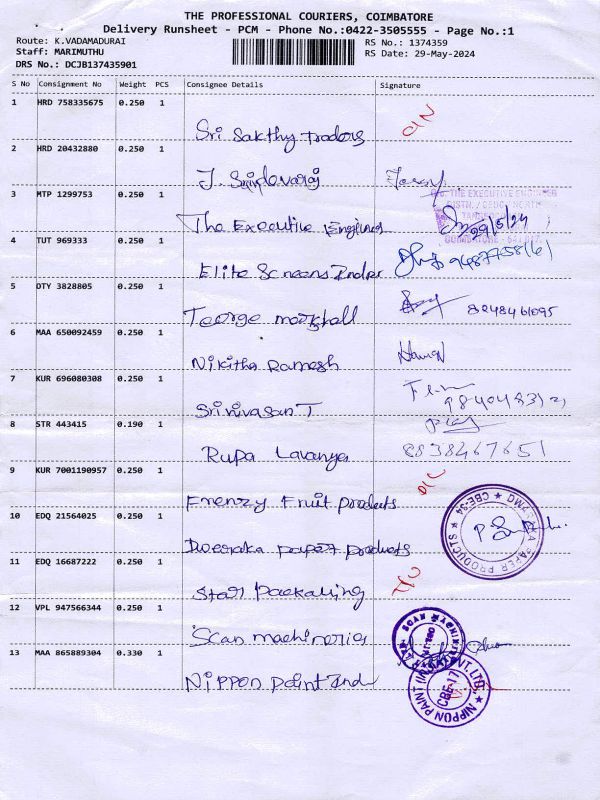 THE PROFESSIONAL COURIERS, COIMBATORE
Delivery Runsheet - PCM - Phone No.:0422-3505555 - Page No.:1
Route: K.VADAMADURAI
RS No.: 1374359
Staff: MARIMUTHU
RS Date: 29-May-2024
DRS No.: DCJB137435901
S No Consignment No Weight PCS Consignee Details Signature
1 HRD 758335675 0.250 1
Sri Sakthy Traders
2 HRD 20432880 0.250 1
J.
3 MTP 1299753 0.250 1
THE EXECUTIVE ENGINEER
The Executive Engineer
29/5/24
4 TUT 969333 0.250 1
Elite Screens Inder
5 OTY 3828805 0.250 1
George marshall 8248461095
6 MAA 650092459 0.250 1
Nikitha Ramesh
7 KUR 696080308 0.250 1
Srinivasan T
8 STR 443415 0.190 1
Rupa Lavanya 8838467651
9 KUR 7001190957 0.250 1
Frenzy Fruit products
10 EDQ 21564025 0.250 1
Dweraka paper products
PAPER PRODUCTS ★ CBE-34 ★
11 EDQ 16687222 0.250 1
Star Packaking
12 VPL 947566344 0.250 1
Scan machineries
13 MAA 865889304 0.330 1
Nippon paint Ind
NIPPON PAINT PVT.LTD.
CBE-17